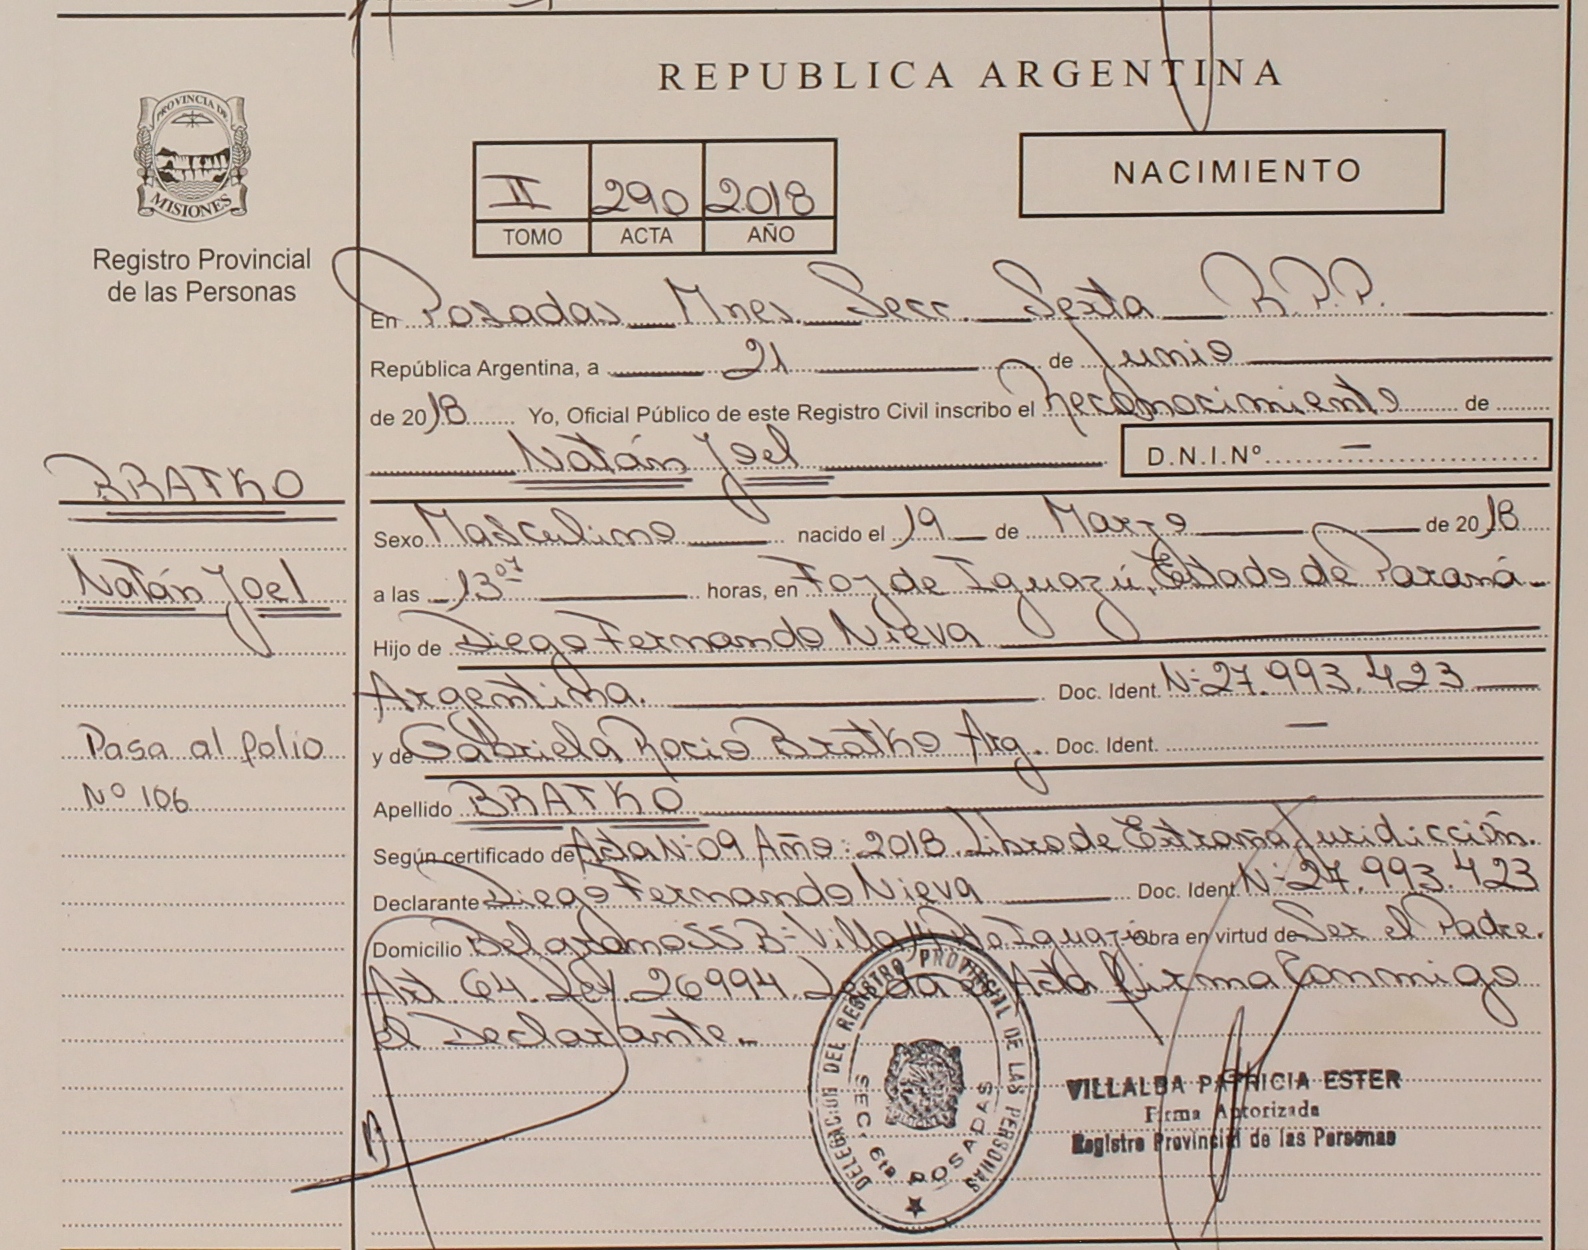 REPUBLICA ARGENTINA
PROVINCIA DE
MISIONES
Registro Provincial
de las Personas
II 290 2018
TOMO ACTA AÑO
NACIMIENTO
En Posadas Mnes. Secc. Sexta R.P.P.
República Argentina, a 21 de Junio
de 2018 Yo, Oficial Público de este Registro Civil inscribo el Reconocimiento de
Natán Joel D.N.I.Nº —
BRATKO
Natán Joel
Pasa al folio
Nº 106
Sexo Masculino nacido el 19 de Marzo de 2018
a las 13 07 horas, en Foz de Iguazú, Estado de Paraná-
Hijo de Diego Fernando Nieva
Argentina. Doc. Ident. Nº 27.993.423
y de Gabriela Rocio Bratko Arg. Doc. Ident. —
Apellido BRATKO
Según certificado de Acta Nº 09 Año: 2018 Libro de Extraña Juridicción.
Declarante Diego Fernando Nieva Doc. Ident Nº 27.993.423
Domicilio Bº Villa Iguazú Obra en virtud de Ser el Padre.
Art 64 Ley 26994 Leida el Acta firma Conmigo
el Declarante.
DELEGACION DEL REGISTRO PROVINCIAL DE LAS PERSONAS
SEC. 6ta POSADAS
VILLALBA PATRICIA ESTER
Firma Autorizada
Registro Provincial de las Personas